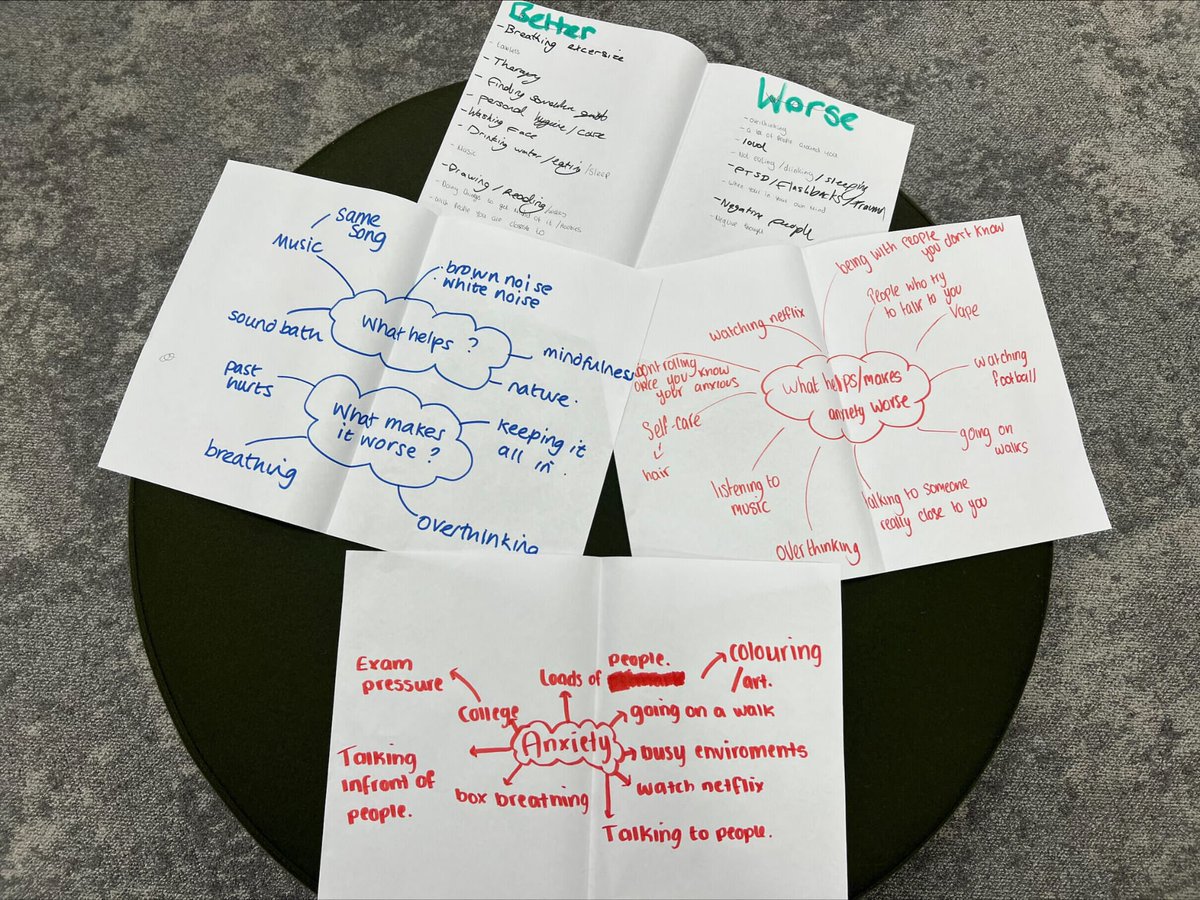 Better
- Breathing excersize
- Therapy
- Finding somewhere
- Personal hygine / care
- Washing Face
- Drinking water / eating / sleep
- Music
- Drawing / Reading
- Doing things to get of it / hobbies
- with people you are closest to
Worse
- overthinking
- a lot of people around you
- loud
- Not eating / drinking / sleeping
- PTSD / Flashbacks / trauma
- when your in your own mind
- Negative people
- Negative though
same
song
Music
brown noise
white noise
sound bath
What helps ?
mindfulness
nature.
past
hurts
What makes
it worse ?
keeping it
all in.
breathing
overthinking
being with people
you dons't know
People who try
to talk to you
Vape
watching netflix
controlling
once you know
your anxious
What helps/makes
anxiety worse
watching
football
Self-care
hair
going on
walks
listening to
music
Talking to someone
really close to you
overthinking
Exam
pressure
College
Loads of
people.
colouring
/art.
going on a walk
Anxiety
busy enviroments
Talking
infront of
people.
box breathing
watch netflix
Talking to people.